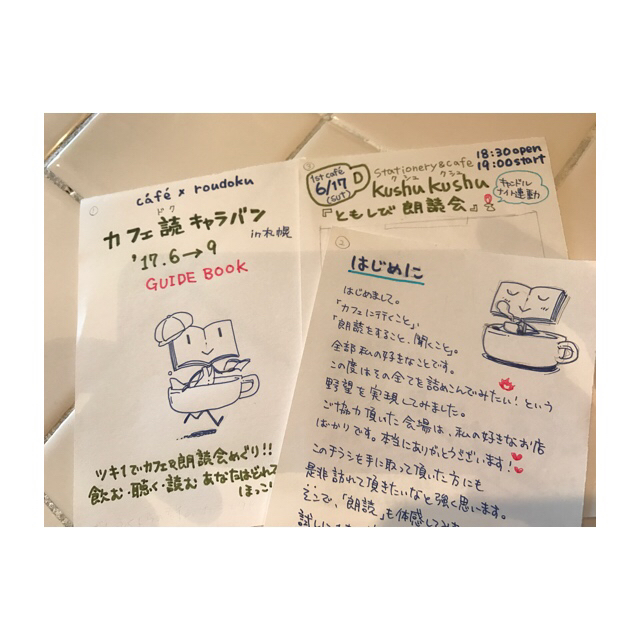 ①
café × roudoku
ドク
カフェ読キャラバン
in札幌
'17.6→9
GUIDE BOOK
ツキ1でカフェを朗読会めぐり!!
飲む・聴く・読む あなたはどれで
ほっこ
③
1st café
6/17
(SUT)
D
Stationery&Cafe
クシュ クシュ
kushu kushu
『ともしび 朗読会』
18:30open
19:00start
キャンドル
ナイト連動
②
はじめに
はじめまして。
「カフェに行くこと」、
「朗読をすること、聞くこと」。
全部私の好きなことです。
この度はその全てを詰めこんでみたい!という
野望を実現してみました。
ご協力頂いた会場は、私の好きなお店
ばかりです。本当にありがとうございます!
このチラシを手に取って頂いた方にも
是非訪れて頂きたいなと強く思います。
そこで、「朗読」も体感してみ
試しに